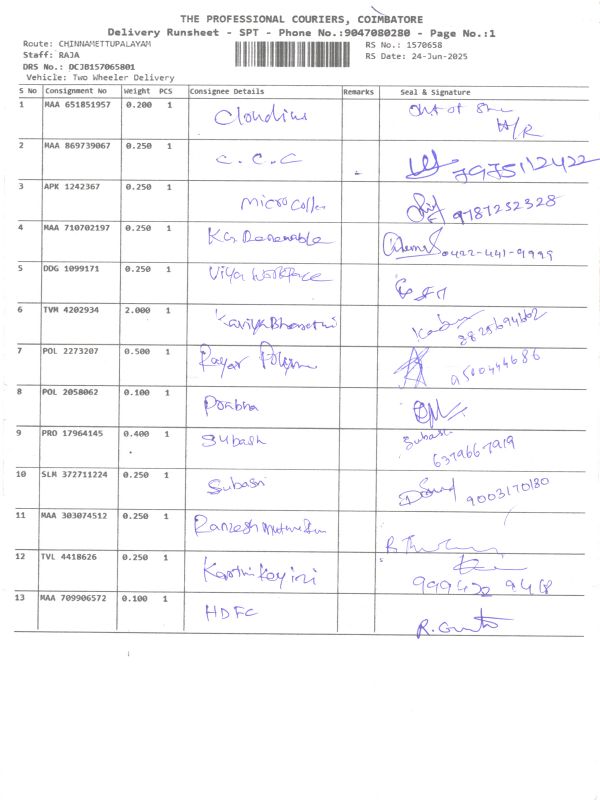 THE PROFESSIONAL COURIERS, COIMBATORE
Delivery Runsheet - SPT - Phone No.:9047080280 - Page No.:1
Route: CHINNAMETTUPALAYAM RS No.: 1570658
Staff: RAJA RS Date: 24-Jun-2025
DRS No.: DCJB157065801
Vehicle: Two Wheeler Delivery
S No Consignment No Weight PCS Consignee Details Remarks Seal & Signature
1 MAA 651851957 0.200 1 out of
H/R
2 MAA 869739067 0.250 1 C.C.C 7975112422
3 APK 1242367 0.250 1 9787252328
4 MAA 710702197 0.250 1 KG Renewable 0422-441-9999
5 DDG 1099171 0.250 1 Viya Workforce
6 TVM 4202934 2.000 1 KaviyaBharathi
7 POL 2273207 0.500 1 Rayar
8 POL 2058062 0.100 1 Prabha
9 PRO 17964145 0.400 1 Subash Subash
6379667919
10 SLM 372711224 0.250 1 Subasri 9003170180
11 MAA 303074512 0.250 1
12 TVL 4418626 0.250 1
13 MAA 709906572 0.100 1 HDFC